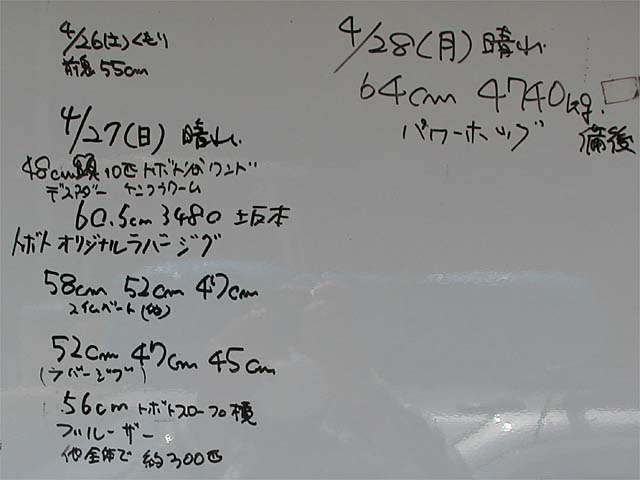 4/26(土)くもり
前島55cm
4/27(日) 晴れ
48cm頭10匹 トボトスロープワンド
デスアダー ケニフラワーム
60.5cm 3480 坂本
トボトオリジナルラバージグ
58cm 52cm 47cm
スイムベート(他)
52cm 47cm 45cm
(ラバージグ)
56cm トボトスロープ横
ブルーザー
他全体で 約300匹
4/28(月) 晴れ
64cm 4740kg.
パワーホッグ 備後